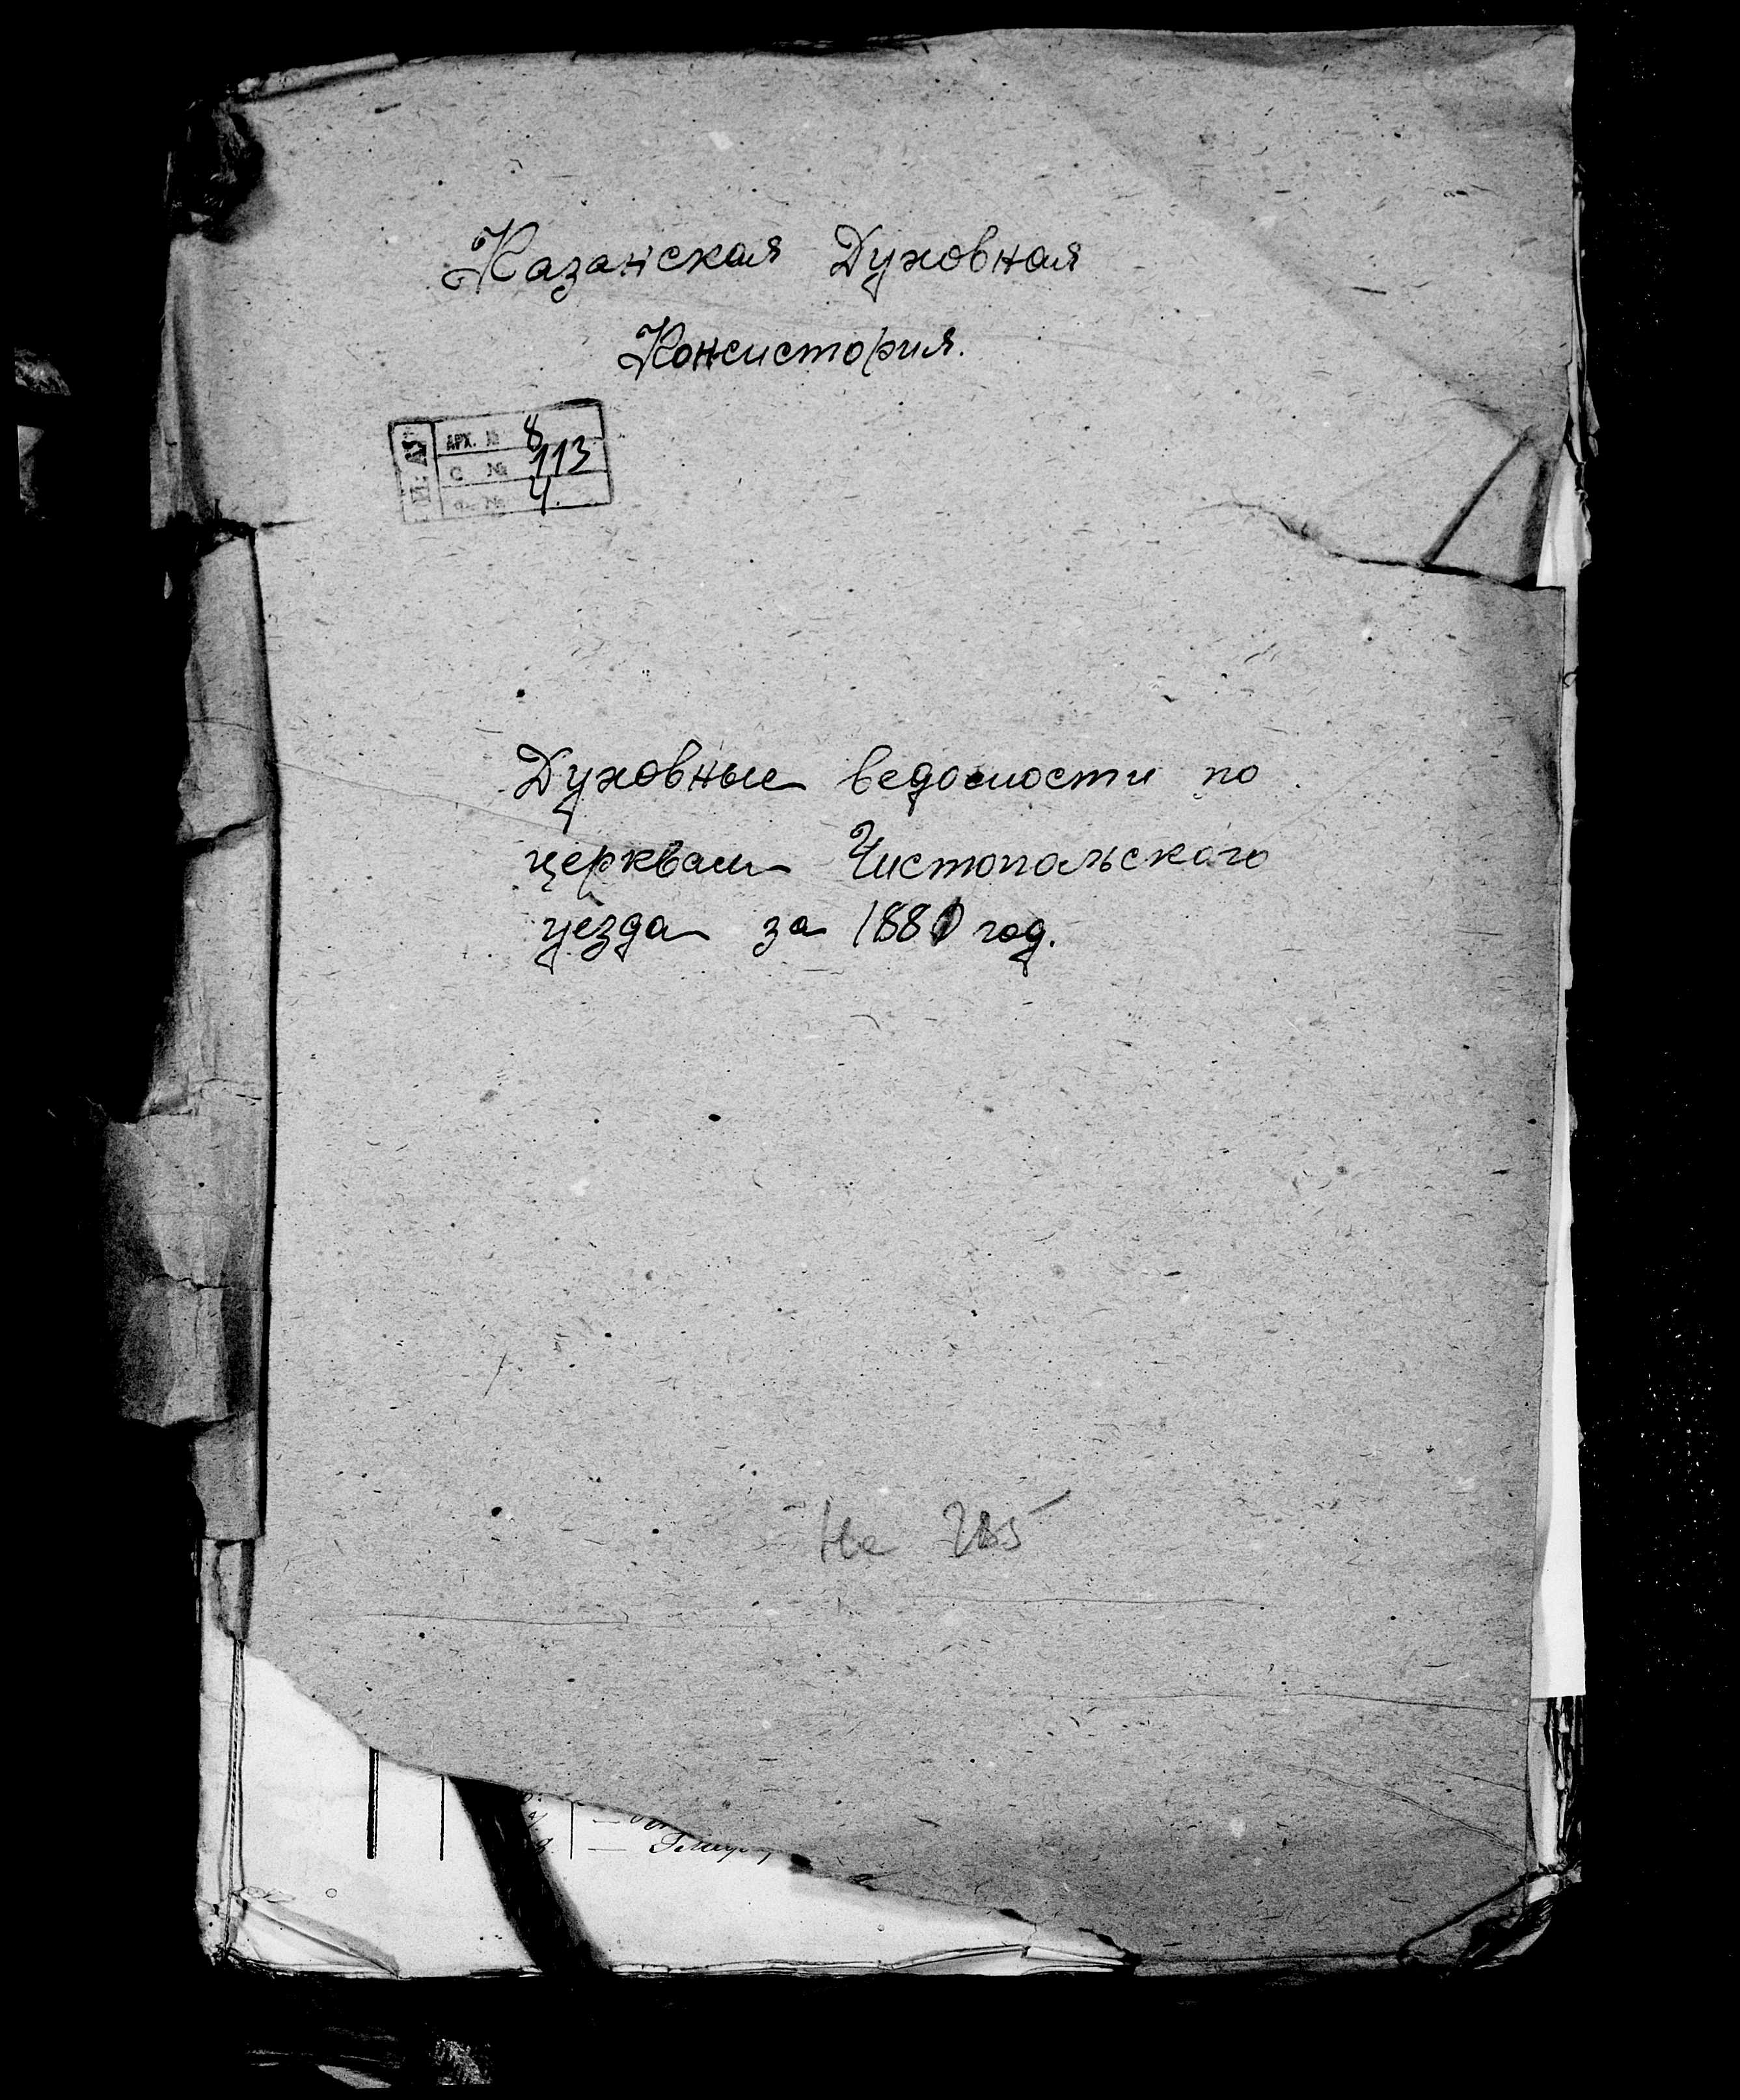 Казанская Духовная
Консистория.
АРХ. № 8
С № 113
Духовные ведомости по
церквам Чистопольского
уезда за 1880 год.
На 285